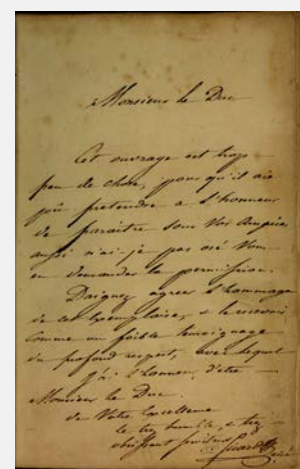 Monsieur le Duc
Cet ouvrage est trop
peu de chose, pour qu'il aie
pû pretendre a l'honneur
de paraitre sous Vos Auspices
aussi n'ai-je pas osé Vous
en demander la permission.
Daignez agreer l'hommage
de cet Exemplaire, & le recevoir
Comme un foible temoignage
du profond respect, avec lequel
j'ai l'honneur d'être
Monsieur le Duc.
de Votre Excellence
le très humble & très
obéissant serviteur